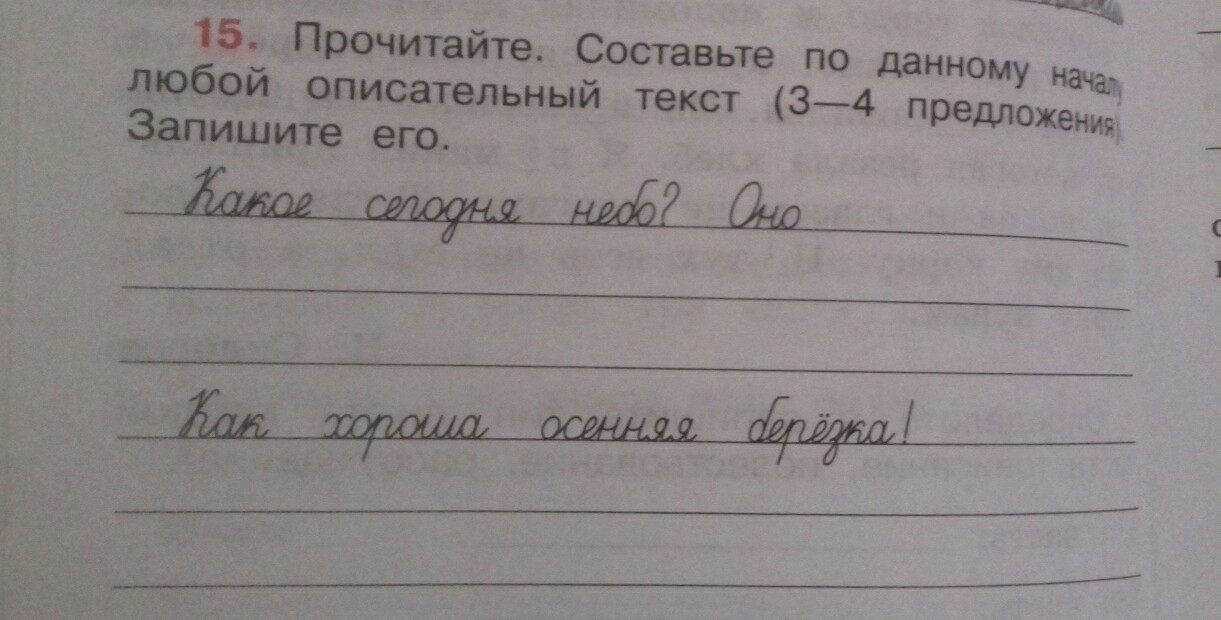 15. Прочитайте. Составьте по данному началу
любой описательный текст (3—4 предложения).
Запишите его.
Какое сегодня небо? Оно
Как хороша осенняя берёзка!